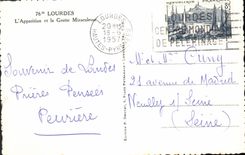 76bis LOURDES
L'Apparition et la Grotte Miraculeuse
LOURDES
1957
LOURDES
CENTRE MONDIAL
DE PELERINAGE
Souvenir de Lourdes
Prières Pensées
Peurière
M. et Mme Cuny
21 avenue de Madrid
Neuilly s/ Seine
(Seine)